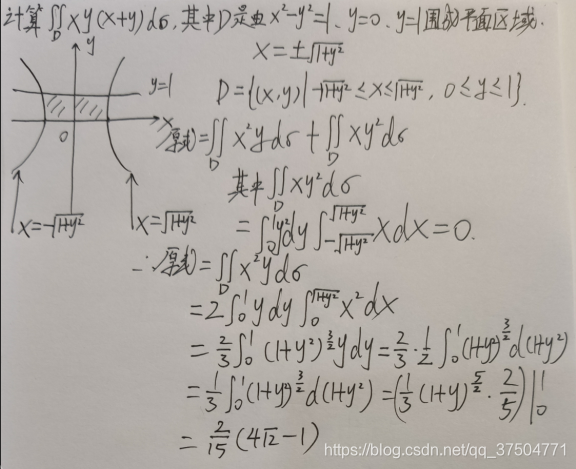 计算∬_D xy(x+y)dσ, 其中D是由x²-y²=1、y=0、y=1围成平面区域.
x=±√(1+y²)
y
y=1
D={(x,y)|-√(1+y²)≤x≤√(1+y²), 0≤y≤1}.
x
0
原式=∬_D x²ydσ+∬_D xy²dσ
其中∬_D xy²dσ
x=-√(1+y²)
x=√(1+y²)
=∫₀¹y²dy∫_{-√(1+y²)}^{√(1+y²)}xdx=0.
∴原式=∬_D x²ydσ
=2∫₀¹ydy∫₀^{√(1+y²)}x²dx
=2/3∫₀¹(1+y²)^{3/2}ydy=2/3·1/2∫₀¹(1+y²)^{3/2}d(1+y²)
=1/3∫₀¹(1+y²)^{3/2}d(1+y²)=(1/3(1+y)^{5/2}·2/5)|₀¹
=2/15(4√2-1)
https://blog.csdn.net/qq_37504771